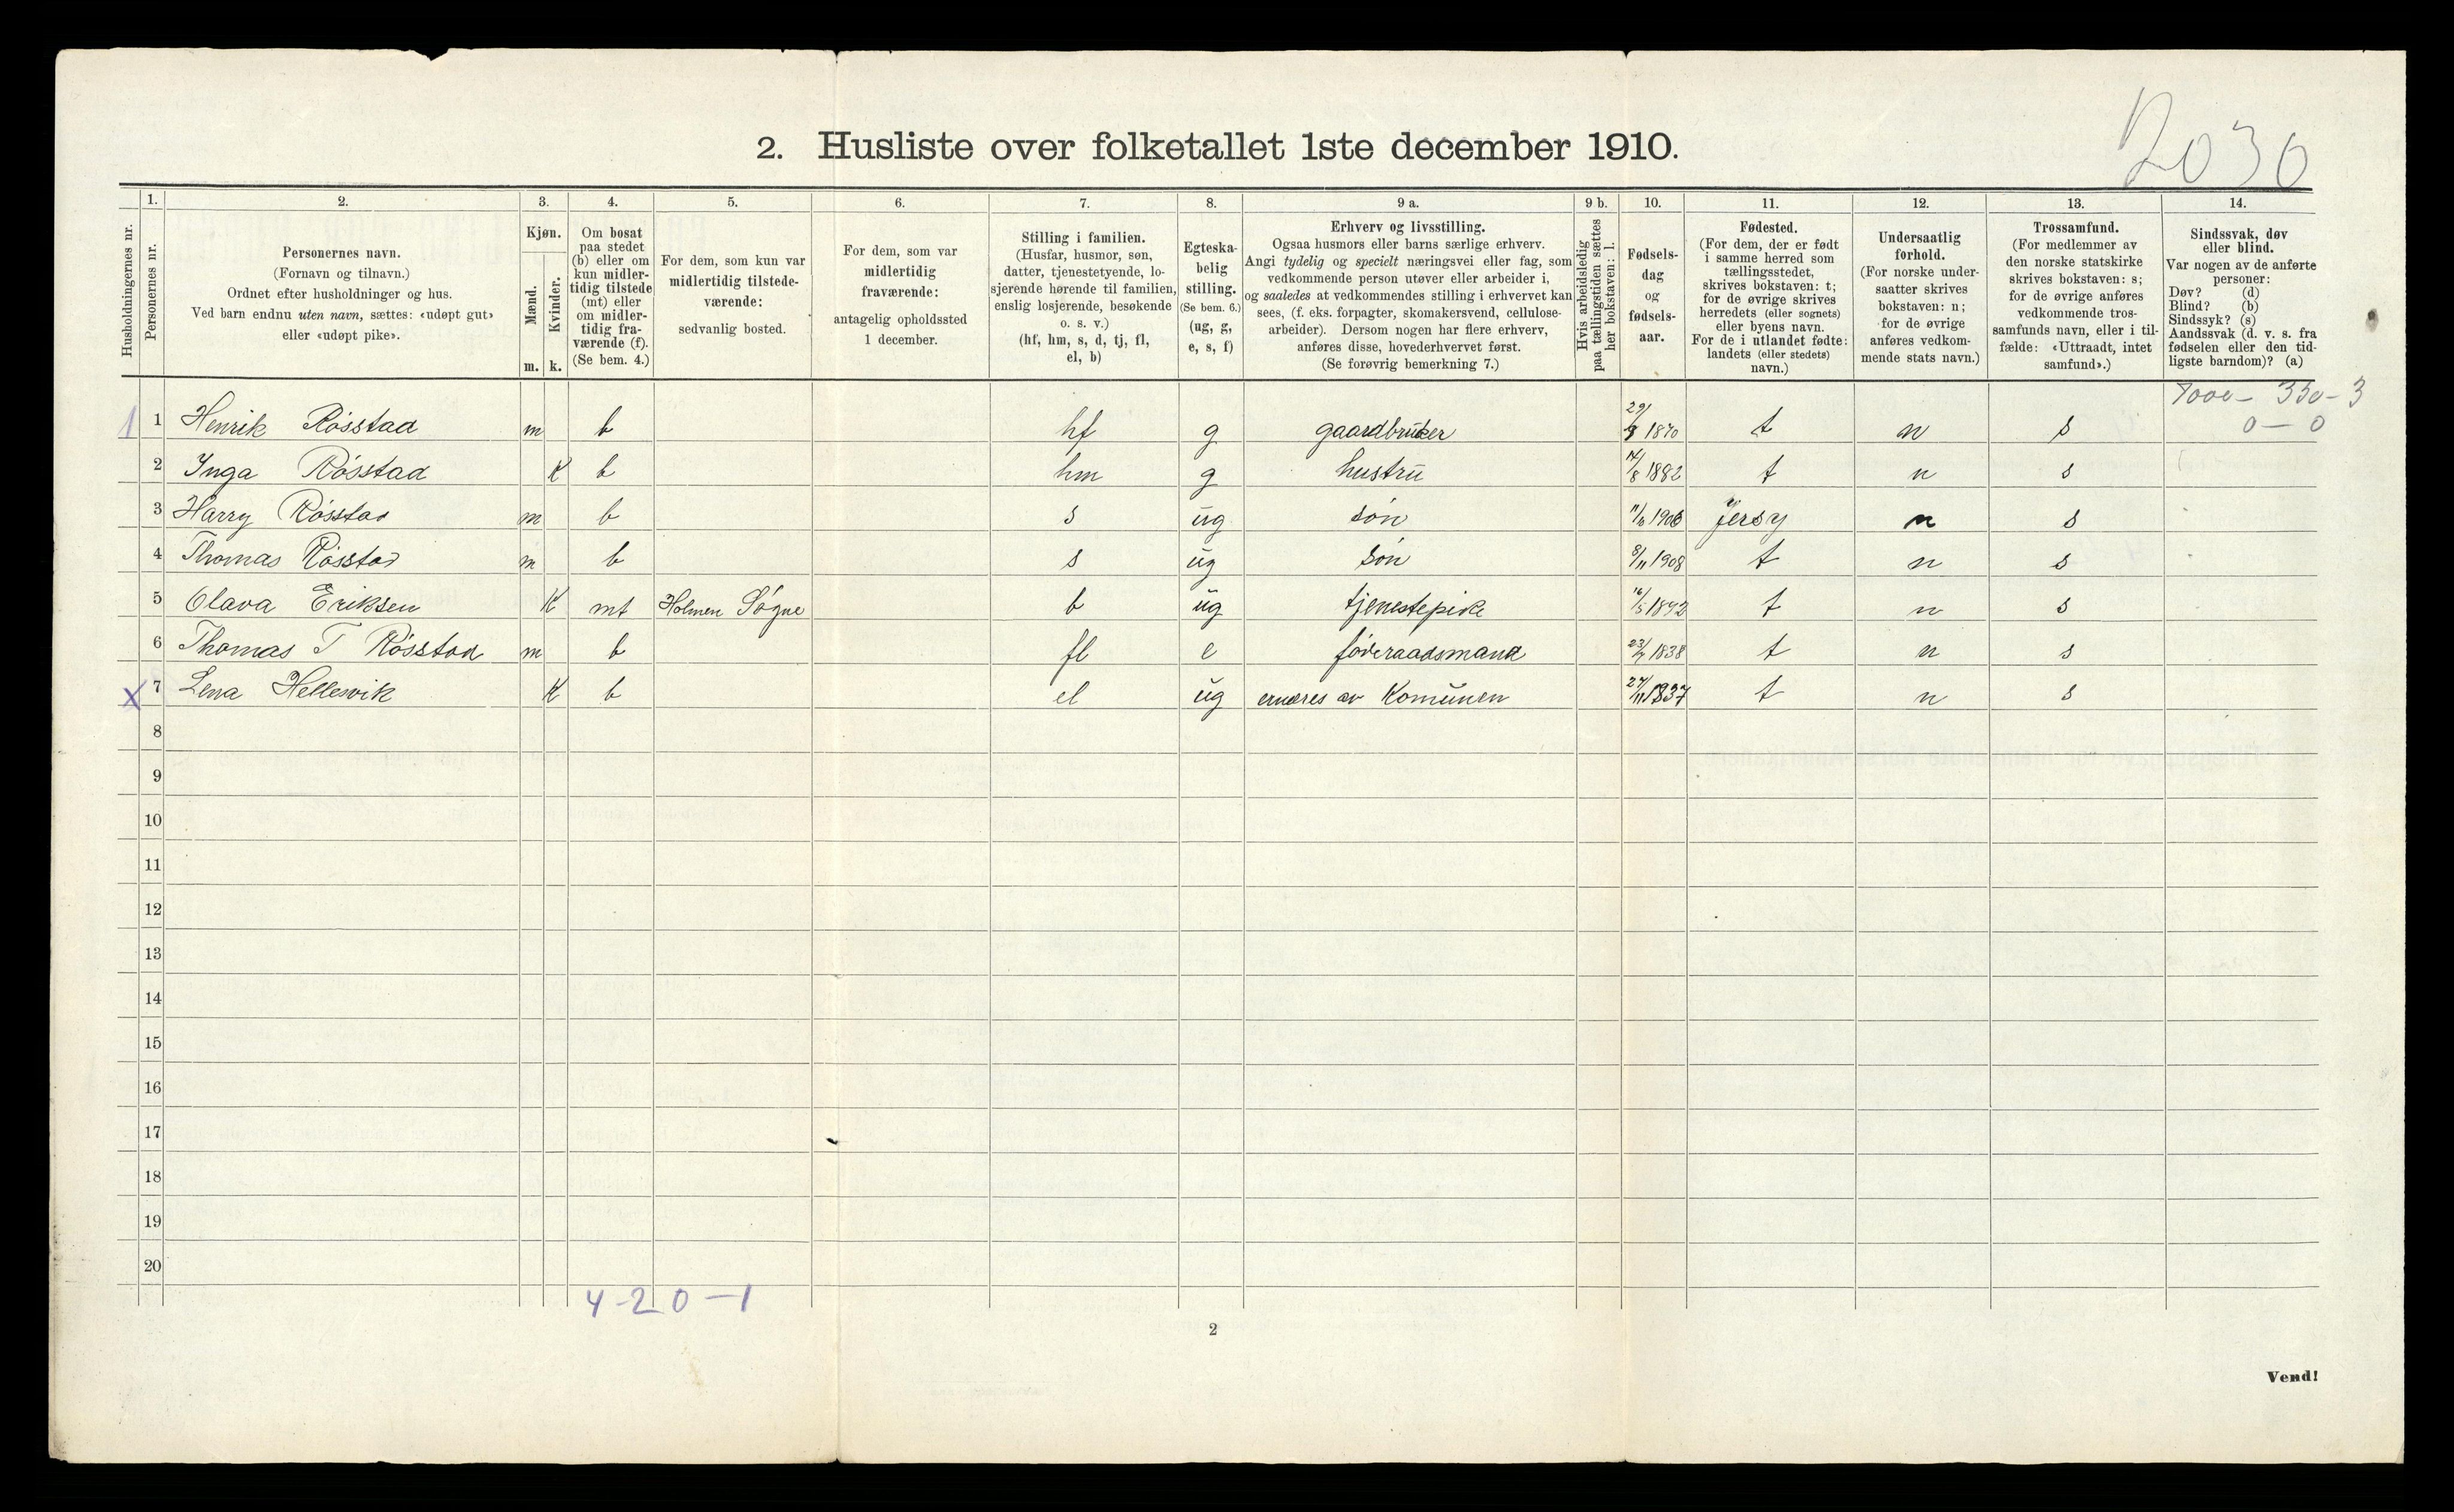 2030
2. Husliste over folketallet 1ste december 1910.
Husholdningernes nr.
1. Personernes nr.
2. Personernes navn. (Fornavn og tilnavn.) Ordnet efter husholdninger og hus. Ved barn endnu uten navn, sættes: «udøpt gut» eller «udøpt pike».
3. Kjøn. Mænd. m. Kvinder. k.
4. Om bosat paa stedet (b) eller om kun midlertidig tilstede (mt) eller om midlertidig fraværende (f). (Se bem. 4.)
5. For dem, som kun var midlertidig tilstedeværende: sedvanlig bosted.
6. For dem, som var midlertidig fraværende: antagelig opholdssted 1 december.
7. Stilling i familien. (Husfar, husmor, søn, datter, tjenestetyende, losjerende hørende til familien, enslig losjerende, besøkende o. s. v.) (hf, hm, s, d, tj, fl, el, b)
8. Egteskabelig stilling. (Se bem. 6.) (ug, g, e, s, f)
9 a. Erhverv og livsstilling. Ogsaa husmors eller barns særlige erhverv. Angi tydelig og specielt næringsvei eller fag, som vedkommende person utøver eller arbeider i, og saaledes at vedkommendes stilling i erhvervet kan sees, (f. eks. forpagter, skomakersvend, cellulosearbeider). Dersom nogen har flere erhverv, anføres disse, hovederhvervet først. (Se forøvrig bemerkning 7.)
9 b. Hvis arbeidsledig paa tællingstiden sættes her bokstaven: l.
10. Fødselsdag og fødselsaar.
11. Fødested. (For dem, der er født i samme herred som tællingsstedet, skrives bokstaven: t; for de øvrige skrives herredets (eller sognets) eller byens navn. For de i utlandet fødte: landets (eller stedets) navn.)
12. Undersaatlig forhold. (For norske undersaatter skrives bokstaven: n; for de øvrige anføres vedkommende stats navn.)
13. Trossamfund. (For medlemmer av den norske statskirke skrives bokstaven: s; for de øvrige anføres vedkommende trossamfunds navn, eller i tilfælde: «Uttraadt, intet samfund».)
14. Sindssvak, døv eller blind. Var nogen av de anførte personer: Døv? (d) Blind? (b) Sindssyk? (s) Aandssvak (d. v. s. fra fødselen eller den tidligste barndom)? (a)
1 1 Henrik Røsstad m b hf g gaardbruker 1870 t n s 0 — 0
2 Inga Røsstad K b hm g hustru 14/8 1882 t n s
3 Harry Røsstad m b s ug søn 1906 Jersy n s
4 Thomas Røsstad m b s ug søn 8/11 1908 t n s
5 Olava Eriksen K mt Holmen Søgne b ug tjenestepike 16/5 1892 t n s
6 Thomas T Røsstad m b fl e føderaadsmand 1838 t n s
x 7 Lena Hellesvik K b el ug ernæres av Komunen 27/11 1837 t n s
8
9
10
11
12
13
14
15
16
17
18
19
20
4-2 0-1
2
Vend!